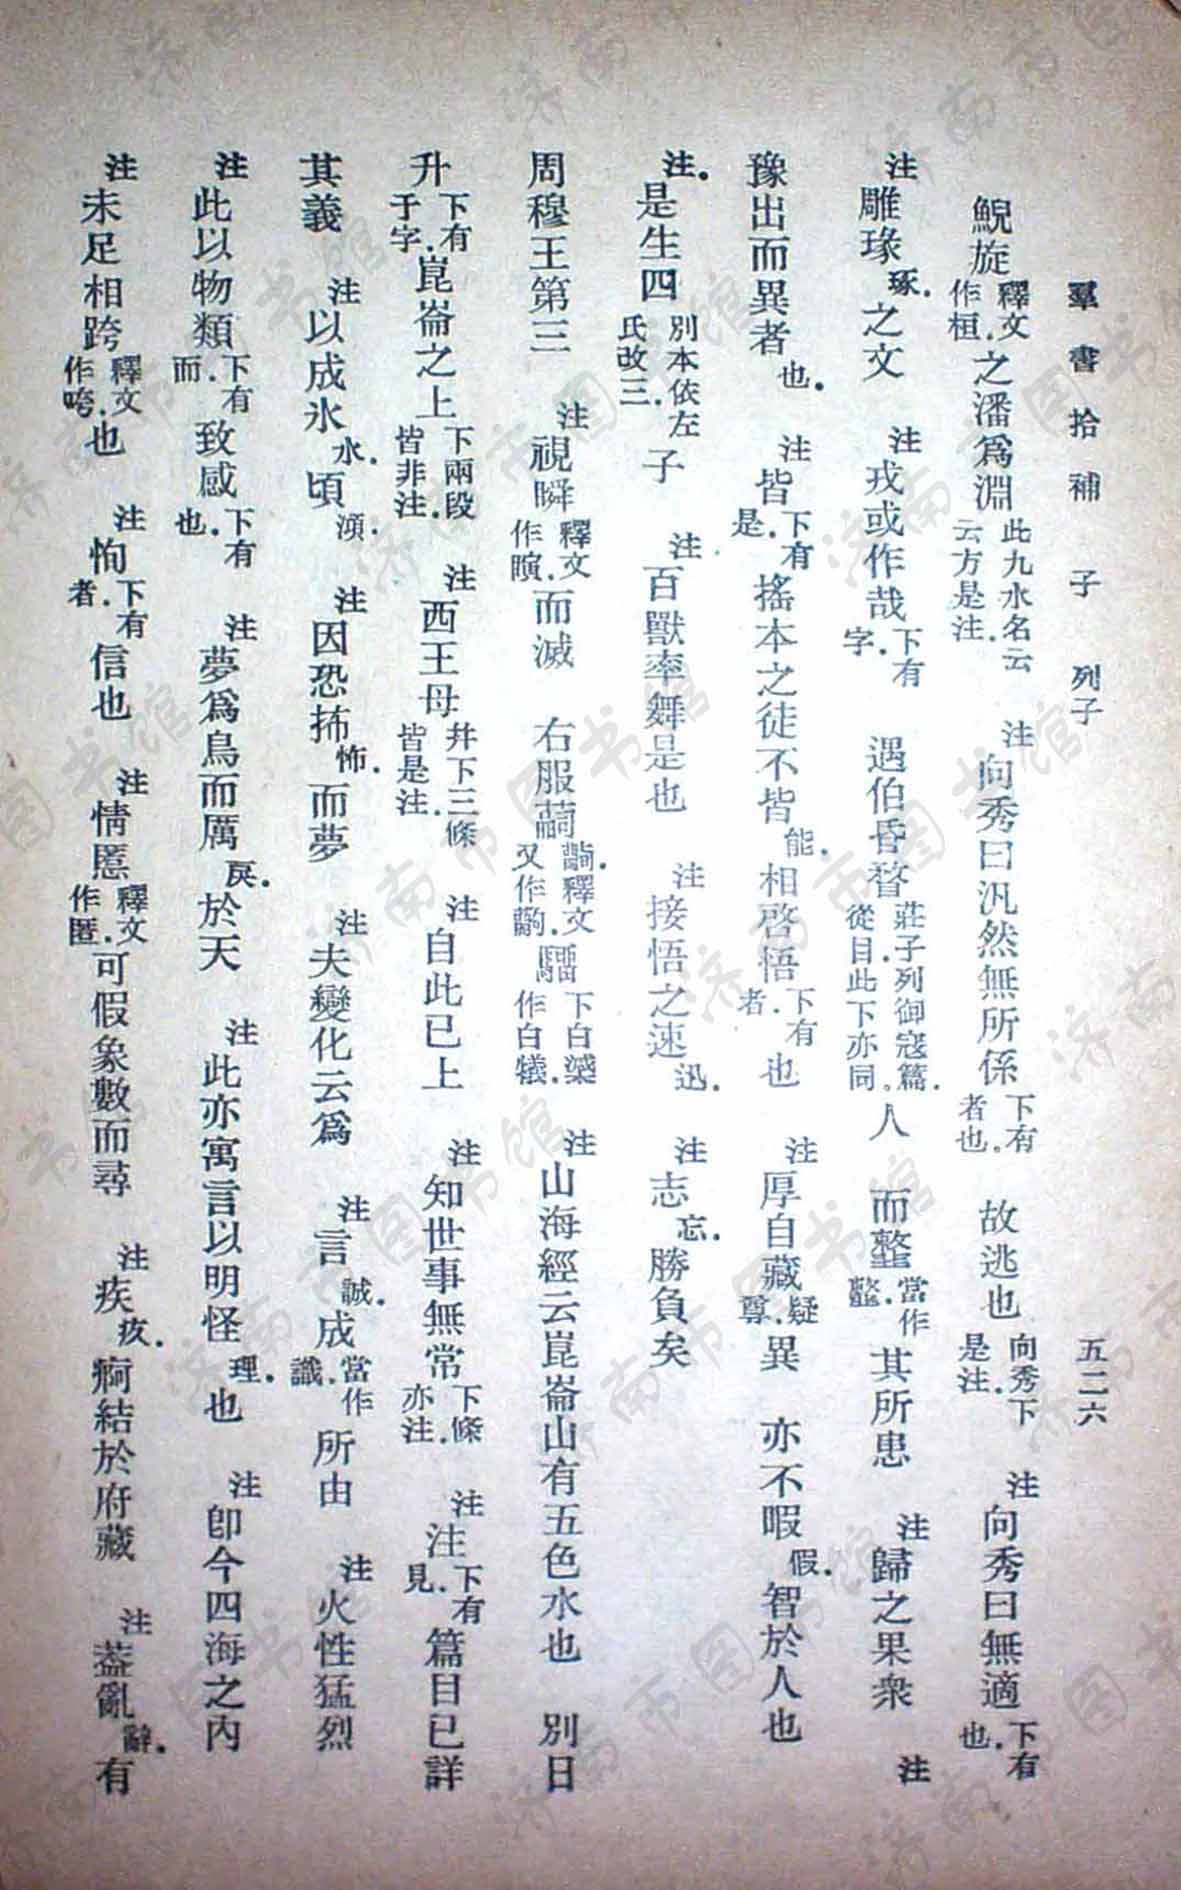 羣書拾補 子 列子 五二六
鯢旋釋文作桓.之潘爲淵此九水名云云方是注. 注向秀曰汎然無所係下有者也. 故逃也向秀下是注. 注向秀曰無適下有也.
注雕瑑琢.之文 注戎或作哉下有字. 遇伯昏瞀莊子列御寇篇.從目.此下亦同。人 而整當作𩐋. 其所患 注歸之果衆 注
豫出而異者也. 注皆下有是.搖本之徒不皆能.相啓悟下有者.也 注厚自藏疑尊.異 亦不暇假.智於人也
注.是生四別本依左氏改三.子 注百獸率舞是也 注接悟之速迅. 注志忘.勝負矣
周穆王第三 注視瞬釋文作瞚.而滅 右服䯄釋文又作.騮下白𣚊作白犧. 注山海經云崑崙山有五色水也 別日
升下有于字.崑崙之上下兩段皆非注. 注西王母幷下三條皆是注. 注自此已上 注知世事無常下條亦注. 注注下有見.篇目已詳
其義 注以成氷水.頃澒. 注因恐抪怖.而夢 注夫變化云爲 注言誠.成當作識.所由 注火性猛烈
注此以物類下有而.致感下有也. 注夢爲鳥而厲戾.於天 注此亦寓言以明怪理.也 注卽今四海之內
注未足相跨釋文作咵.也 注恂下有者.信也 注情慝釋文作匿.可假象數而尋 注疾疚.痾結於府藏 注葢亂辭.有